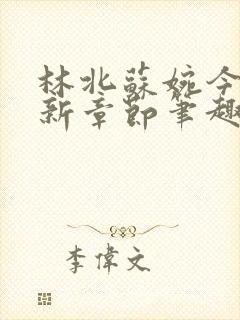 林北蘇婉今
新章節筆趣
李偉文